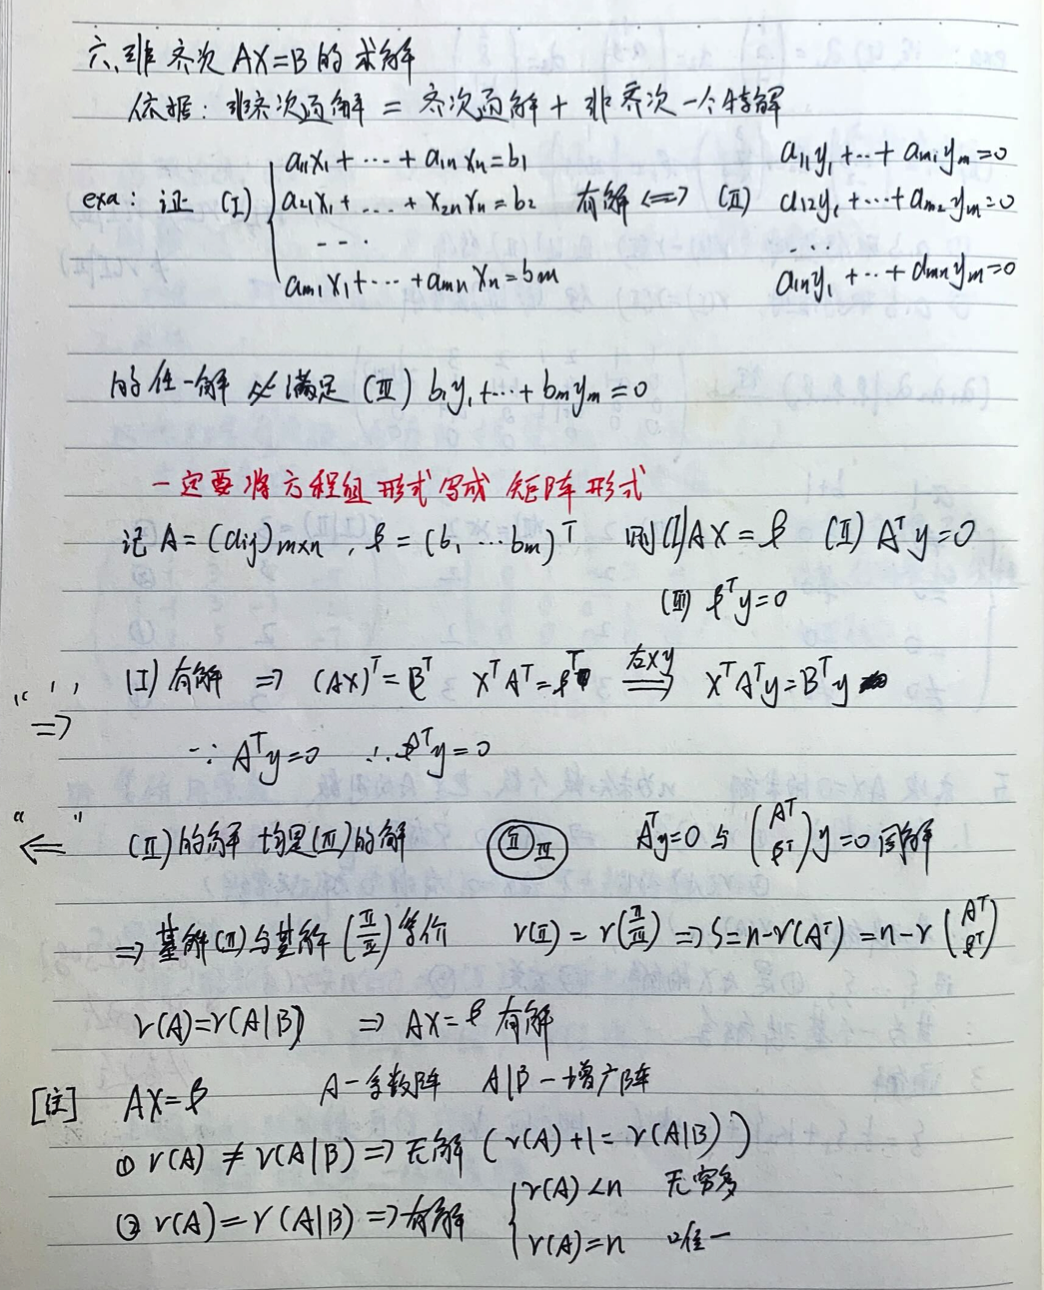 六、非齐次 AX=B 的求解
依据: 非齐次通解 = 齐次通解 + 非齐次一个特解
a₁₁x₁ + ··· + a₁ₙxₙ = b₁    a₁₁y₁ + ··· + aₘ₁yₘ = 0
exa: 证 (I) { a₂₁x₁ + ... + x₂ₙxₙ = b₂ 有解 <=> (II) a₁₂y₁ + ··· + aₘ₂yₘ = 0
- - ·    ···
aₘ₁x₁ + ··· + aₘₙxₙ = bₘ    a₁ₙy₁ + ·· + aₘₙyₘ = 0
的任一解必满足 (III) b₁y₁ + ··· + bₘyₘ = 0
一定要将方程组形式写成矩阵形式
记 A = (aᵢⱼ)ₘₓₙ , β = (b₁ ··· bₘ)ᵀ 则(I) AX = β (II) Aᵀy = 0
(III) βᵀy = 0
“⇒” (I) 有解 ⇒ (AX)ᵀ = βᵀ XᵀAᵀ = βᵀ ⇒(右×y) XᵀAᵀy = Bᵀy
∵ Aᵀy = 0 ∴ βᵀy = 0
“⇐” (II) 的解均是(III)的解 (II) III Aᵀy = 0 与 (Aᵀ βᵀ)y = 0 同解
⇒ 基解(II)与基解(II III)等价 r(II) = r(II III) ⇒ S = n - r(Aᵀ) = n - r(Aᵀ βᵀ)
r(A) = r(A|B) ⇒ AX = β 有解
[注] AX = β A-系数阵 A|B-增广阵
① r(A) ≠ r(A|B) ⇒ 无解 (r(A)+1 = r(A|B))
② r(A) = r(A|B) ⇒ 有解 { r(A) < n 无穷多
r(A) = n 唯一